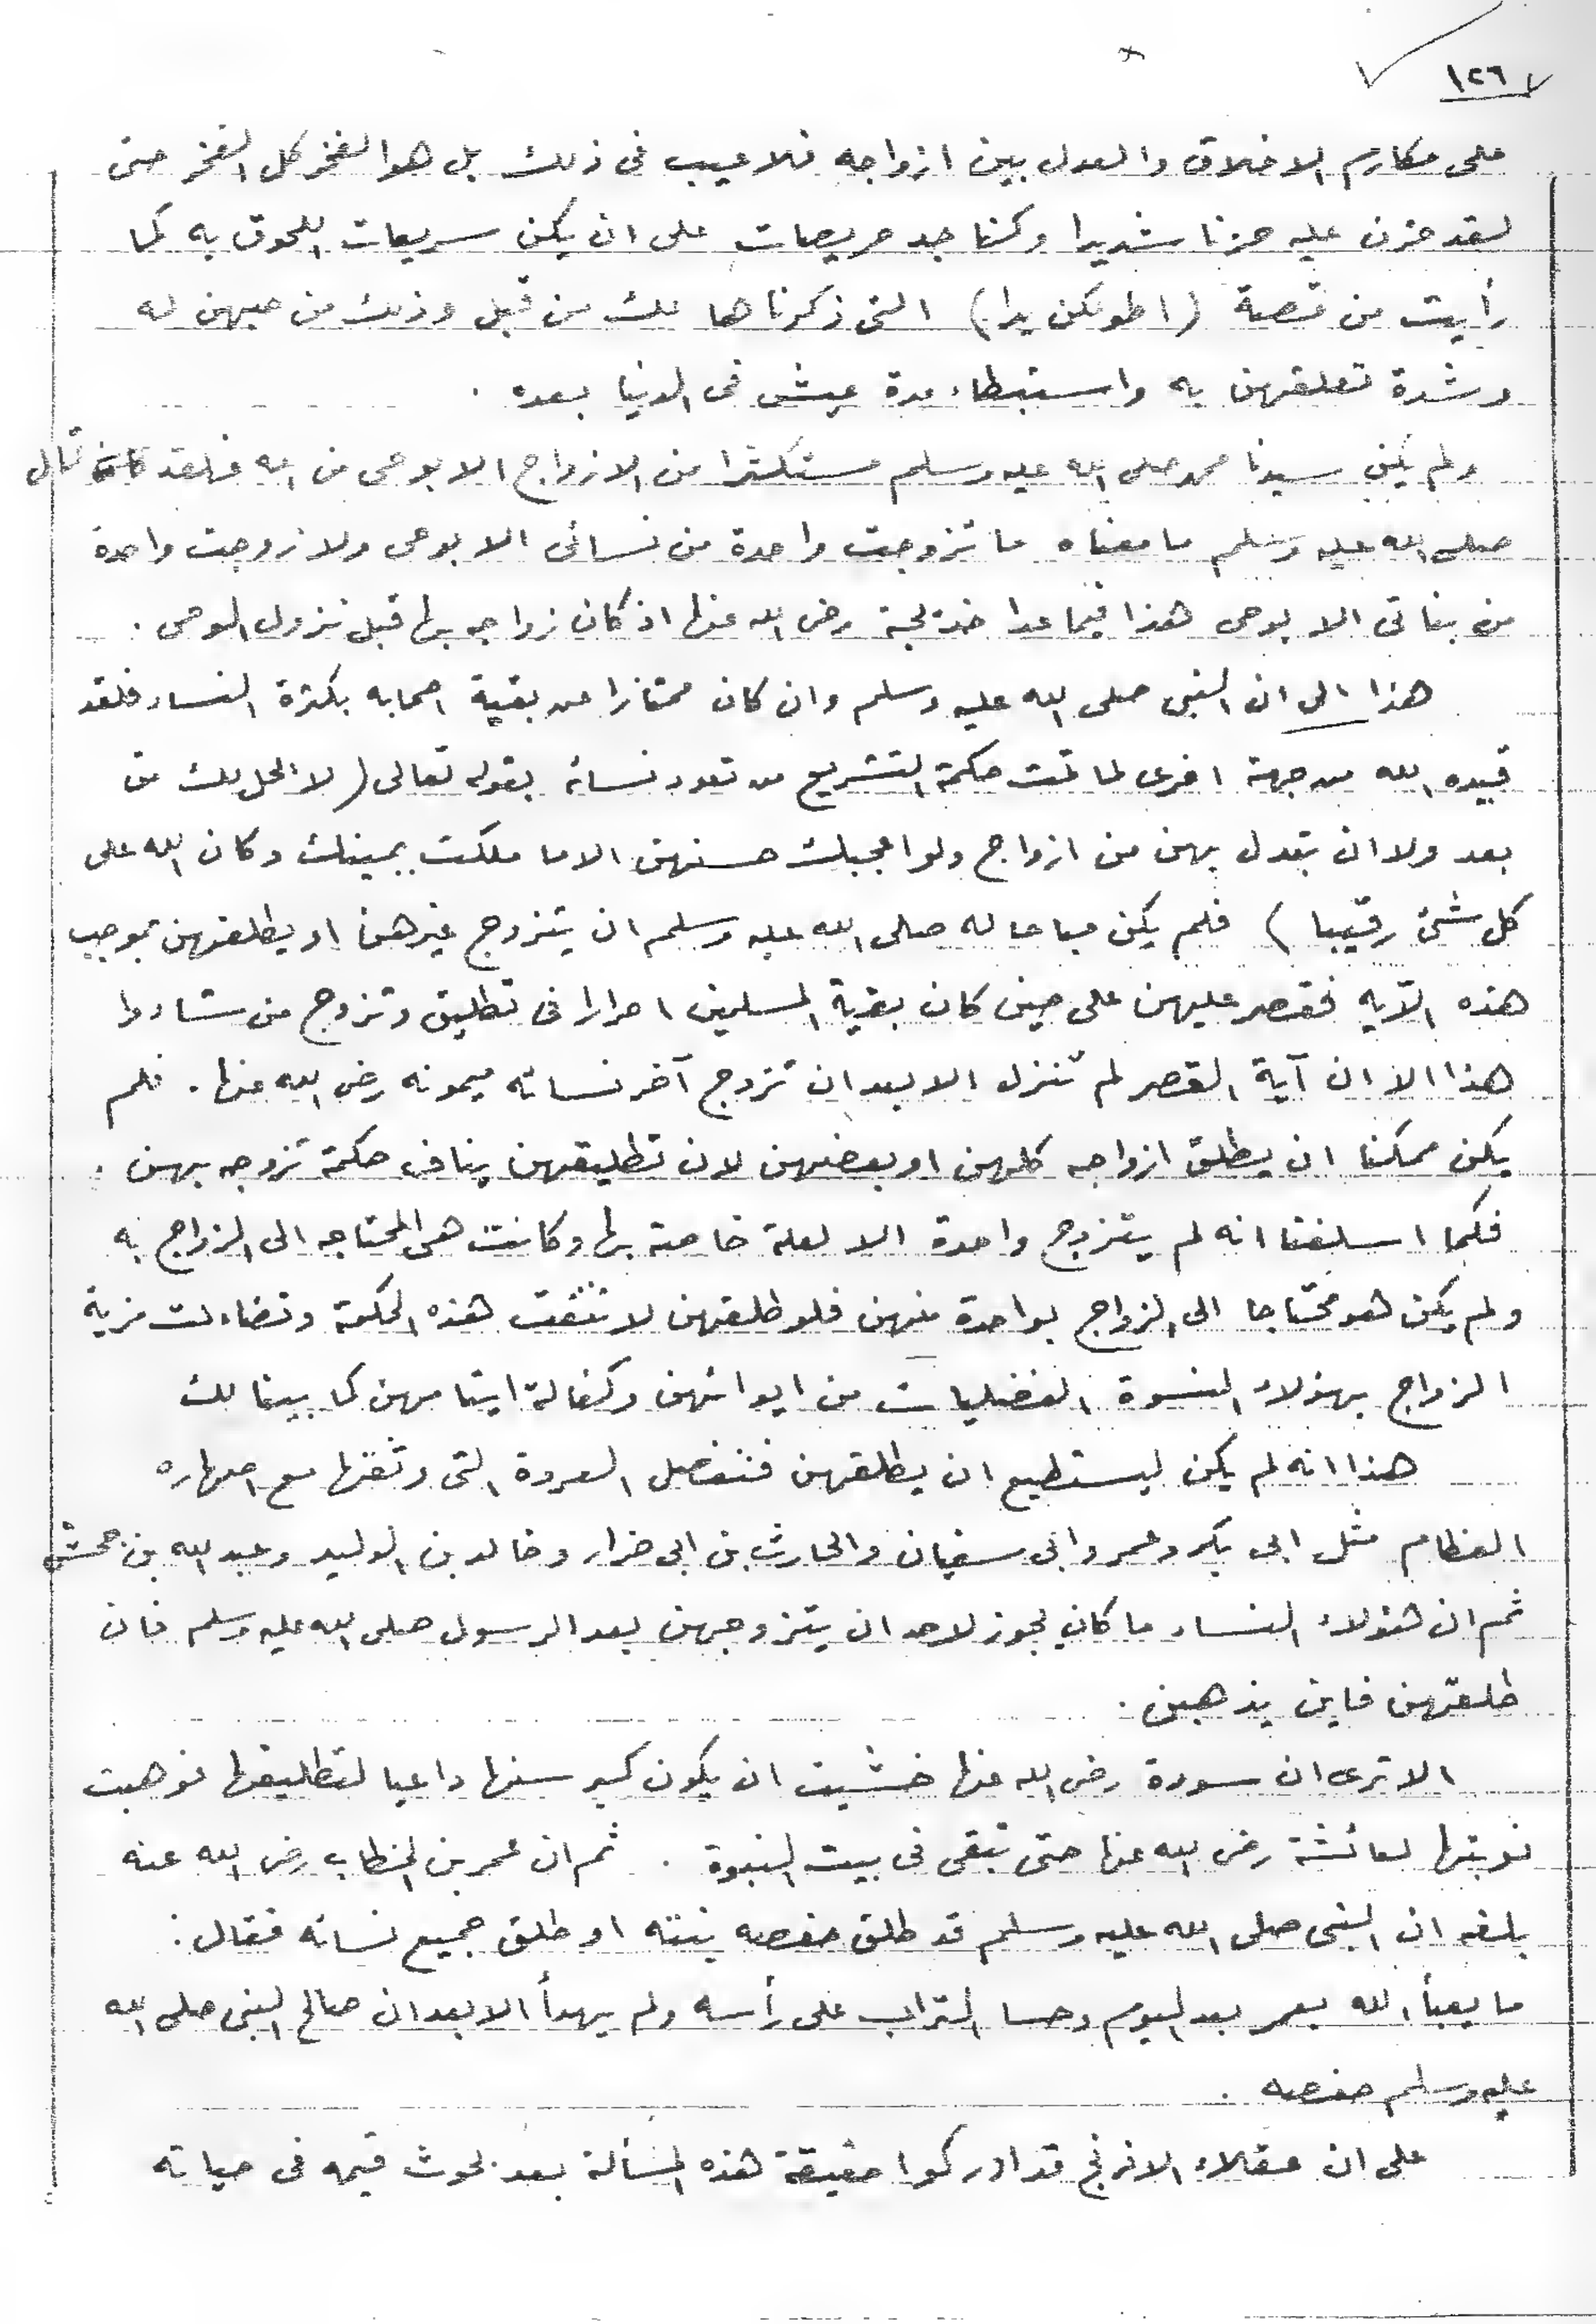 ١٢٦
على مكارم الاخلاق والعدل بين ازواجه فلا عيب فى ذلك بل هو الفخر كل الفخر حتى
لقد حزن عليه حزنا شديدا وكنا جد حريصات على ان يكن سريعات اللحوق به كما
رأيت من قصة (اطولكن يدا) التى ذكرناها لك من قبل وذلك من حبهن له
وشدة تعلقهن به واستبطاء مدة عيش فى الدنيا بعده .
ولم يكن سيدنا محمد صلى الله عليه وسلم مستكثرا من الازواج الا بوحى من الله فلقد قال
صلى الله عليه وسلم ما معناه ما تزوجت واحدة من نسائى الا بوحى ولا زوجت واحدة
من بناتى الا بوحى هذا فيما عدا خديجة رضى الله عنها اذ كان زواجه بها قبل نزول الوحى .
هذا الى ان النبى صلى الله عليه وسلم وان كان ممتازا عن بقية اصحابه بكثرة النساء فلقد
قيده الله من جهة اخرى لما تمت حكمة التشريع من تعدد نسائه بقوله تعالى (لا تحل لك من
بعد ولا ان تبدل بهن من ازواج ولو اعجبك حسنهن الا ما ملكت يمينك وكان الله على
كل شئ رقيبا) فلم يكن مباحا له صلى الله عليه وسلم ان يتزوج غيرهن او يطلقهن بموجب
هذه الآيه فقصر عليهن على حين كان بقية المسلمين احرارا فى تطليق وتزوج من شاءوا
هذا الا ان آية القصر لم تنزل الا بعد ان تزوج آخر نسائه ميمونه رضى الله عنها . فلم
يكن ممكنا ان يطلق ازواجه كلهن او بعضهن لان تطليقهن ينافى حكمة تزوجه بهن .
فكما اسلفنا انه لم يتزوج واحدة الا لعلة خاصة بها وكانت هى المحتاجه الى الزواج به
ولم يكن هو محتاجا الى الزواج بواحدة منهن فلو طلقهن لانتفت هذه الحكمة وتضاءلت مزية
الزواج بهؤلاء النسوة الفضليات من ايوائهن وكفالة ايتامهن كما بينا لك
هذا انه لم يكن ليستطيع ان يطلقهن فتنفصل العروة التى وثقها مع اصهاره
العظام مثل ابى بكر وعمر وابى سفيان والحارث بن ابى ضرار وخالد بن الوليد وعبد الله بن جحش
ثم ان هؤلاء النساء ما كان يجوز لاحد ان يتزوجهن بعد الرسول صلى الله عليه وسلم فان
طلقهن فاين يذهبن .
الا ترى ان سودة رضى الله عنها خشيت ان يكون كبر سنها داعيا لتطليقها فوهبت
نوبتها لعائشة رضى الله عنها حتى تبقى فى بيت النبوة . ثم ان عمر بن الخطاب رضى الله عنه
بلغه ان النبى صلى الله عليه وسلم قد طلق حفصه بنته او طلق جميع نسائه فقال :
ما يعبأ الله بعمر بعد اليوم وحسا التراب على رأسه ولم يهدأ الا بعد ان صالح النبى صلى الله
عليه وسلم حفصه .
على ان عقلاء الافرنج قد ادركوا حقيقة هذه المسألة بعد بحوث قيمه فى حياته